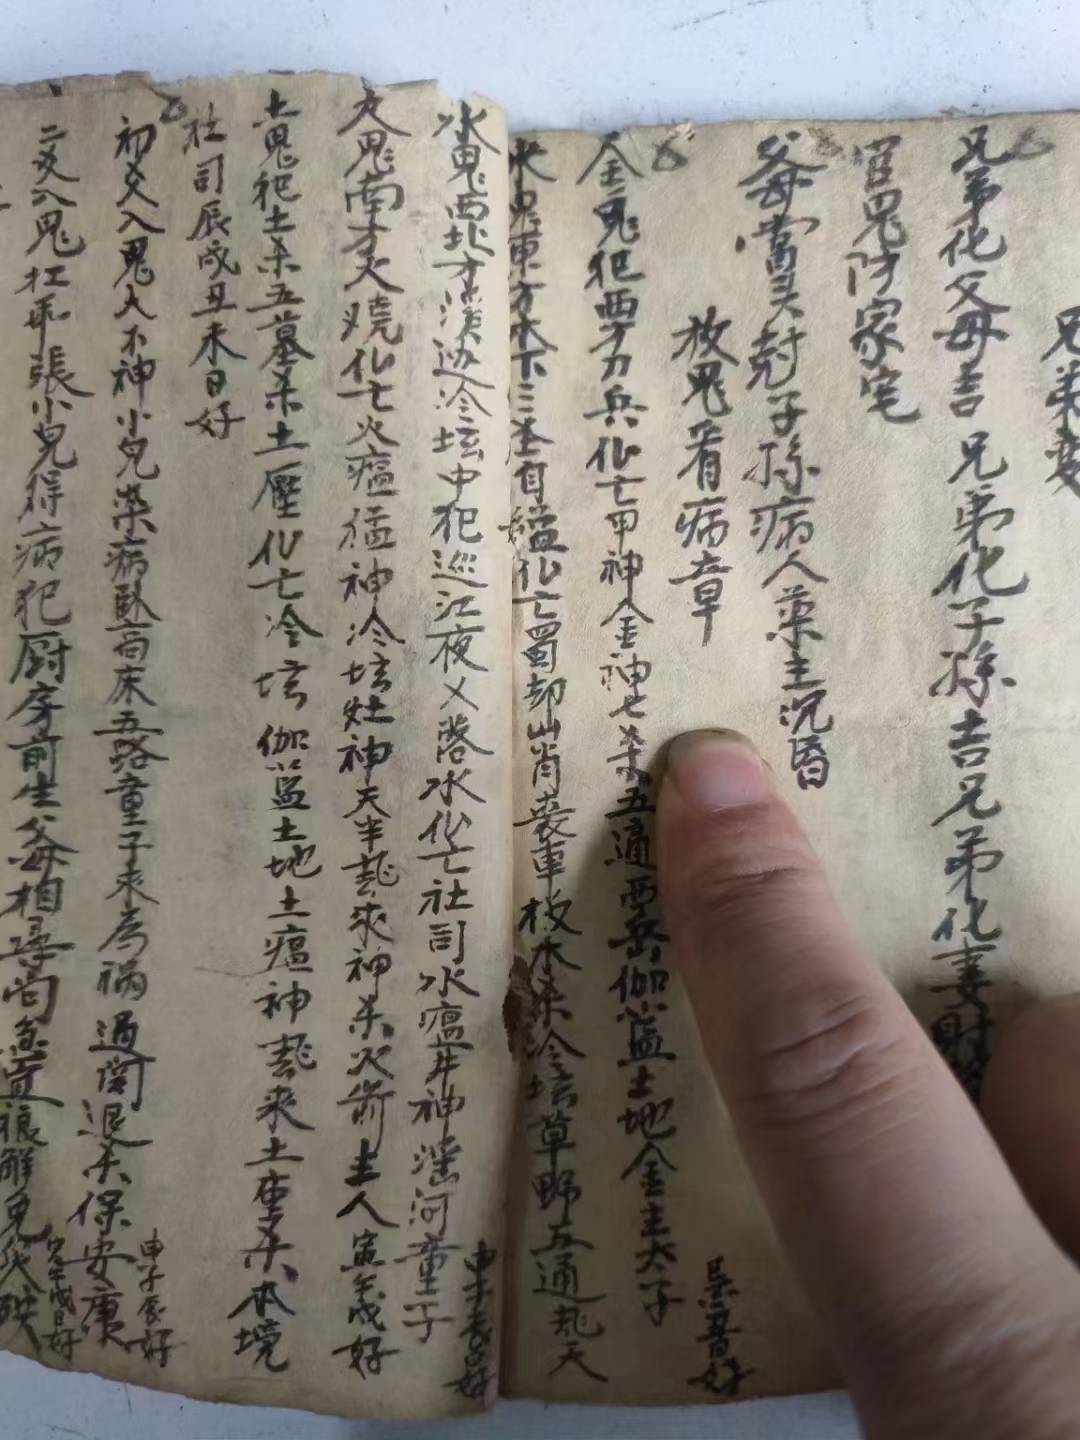 兄弟変
兄弟化父母吉兄弟化子孫吉兄弟化妻財
官鬼防家宅
父母當頭尅子孫病人藥主沉昏
放鬼看病章
金鬼犯西方刀兵化亡甲神金神七杀五通西岳伽藍土地金主太子
吴丑日好
木鬼東方木下三杀自縊化亡蜀却山肖喪車板木杀冷坛草野五通乱天
水鬼西北方溪边冷坛中犯巡江夜乂落水化亡社司水瘟井神溪河童子
申子辰日好
火鬼南方火燒化亡火瘟猛神冷坛灶神天半乱来神杀火箭主人寅午戍好
土鬼犯土杀五墓杀土壓化亡冷坛伽藍土地土瘟神乱来土重杀本境
社司辰戍丑未日好
初爻入鬼人不神小兒染病卧高床五路童子来為禍過関退杀保安康
申子辰好
二爻入鬼扛乖張小兒得病犯厨房前生父母相尋向急宜禳解免災殃
寅午戍日好